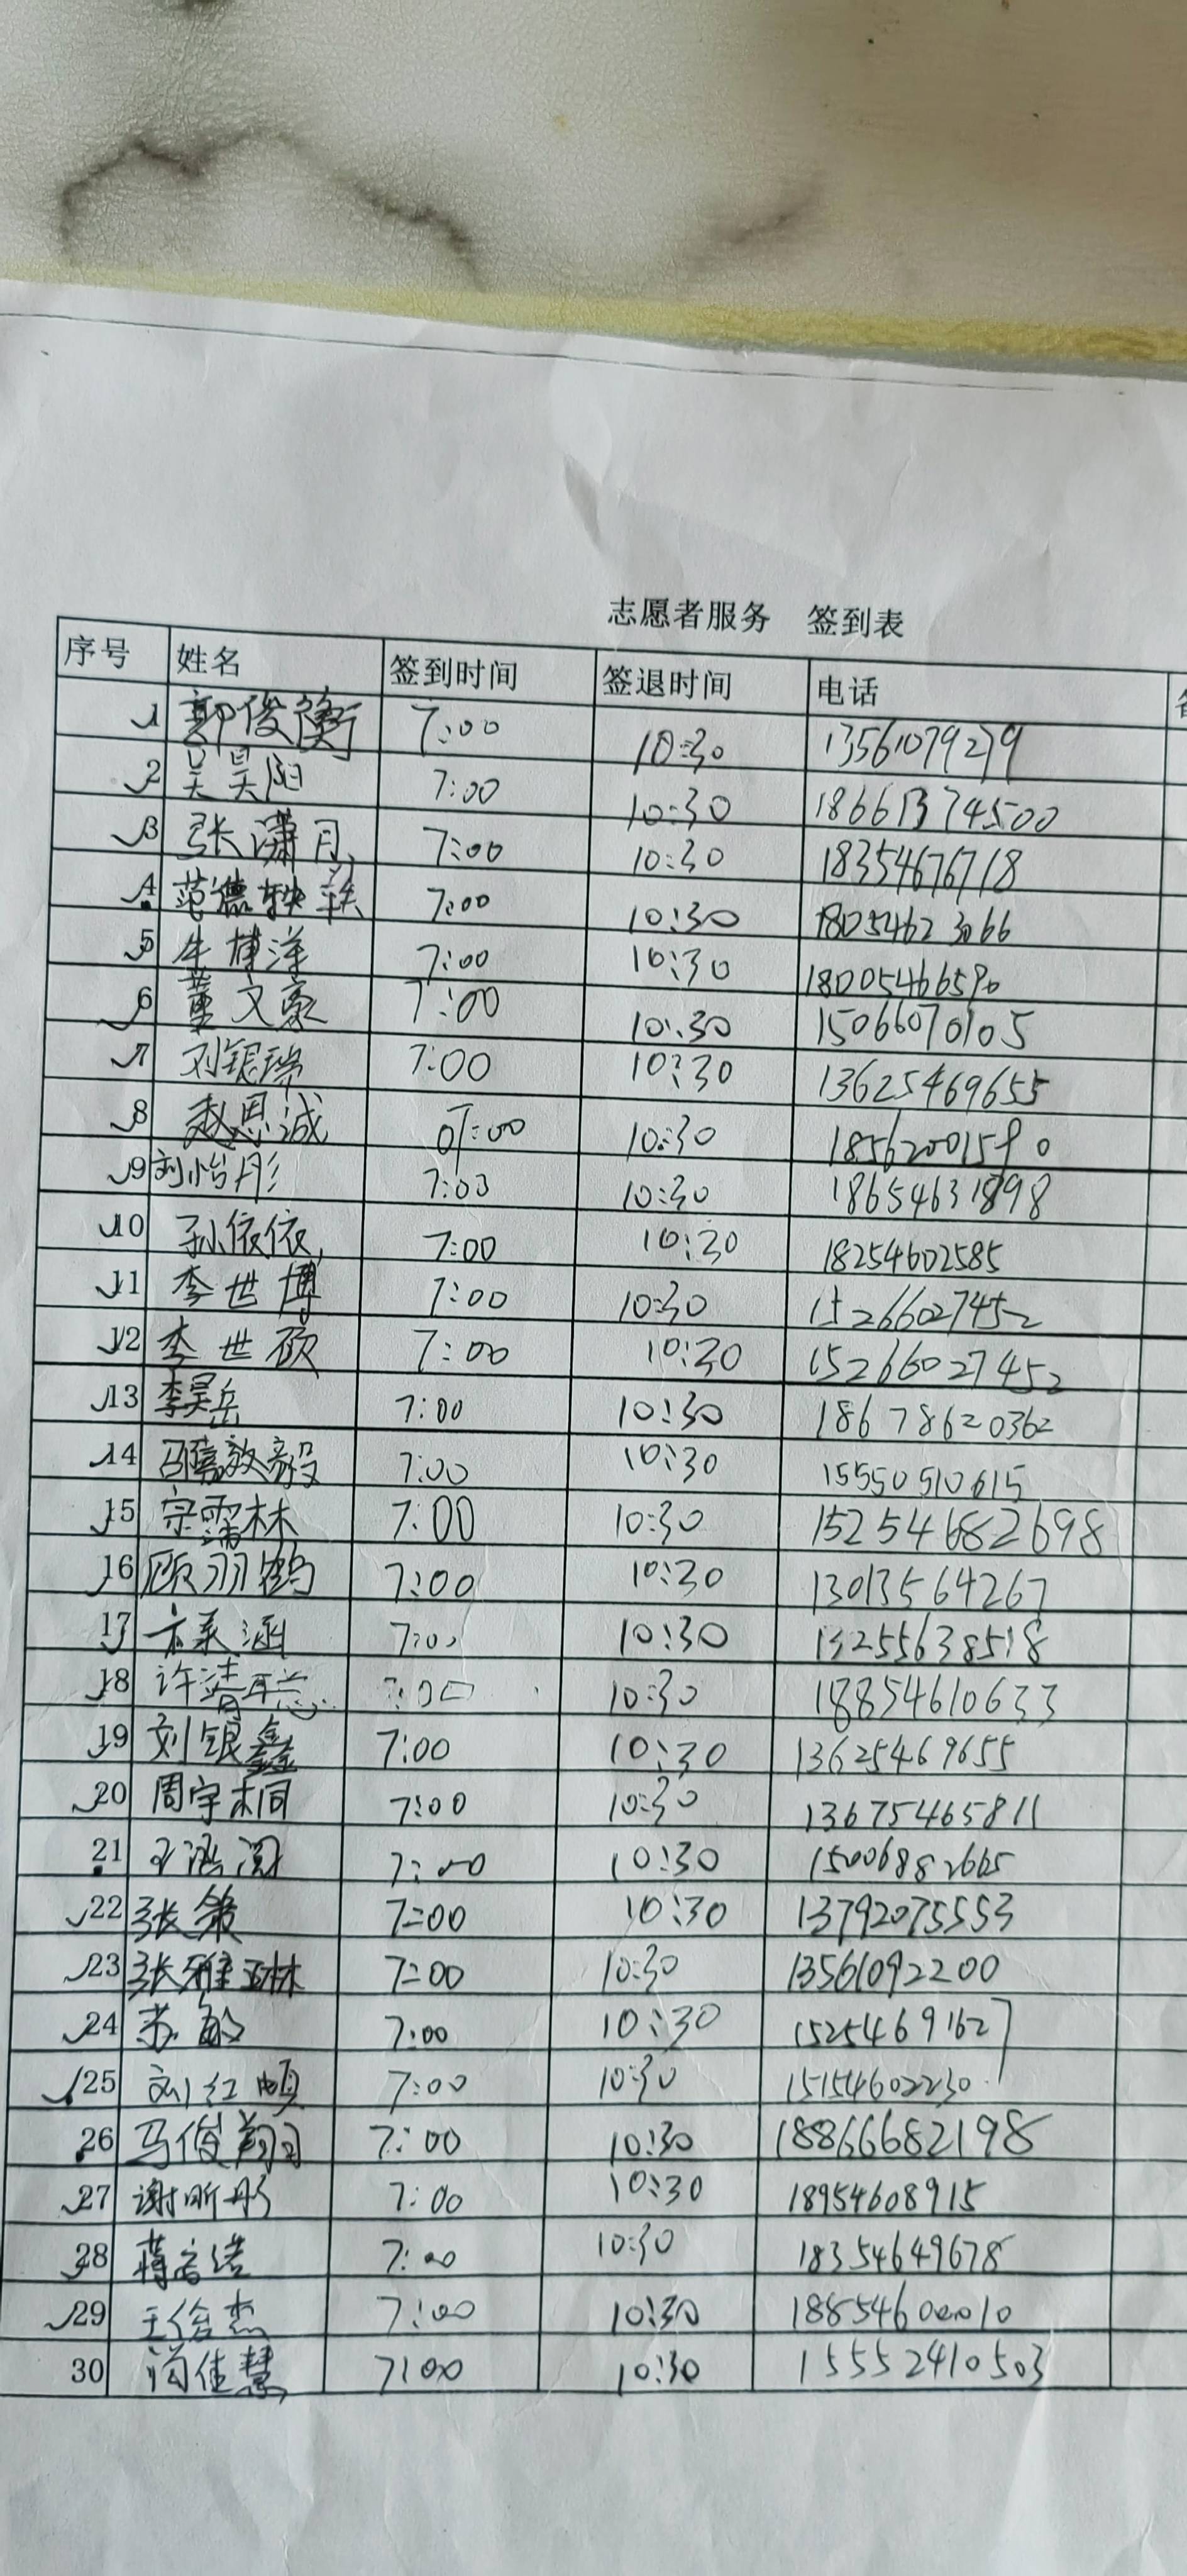 志愿者服务 签到表
序号 姓名 签到时间 签退时间 电话
1 郭俊衡 7:00 10:30 13561079279
2 吴昊阳 7:00 10:30 18661374500
3 张潇月 7:00 10:30 18354676718
4 范德轶 7:00 10:30 18054623066
5 牛博洋 7:00 10:30 18005466590
6 董文豪 7:00 10:30 15066070105
7 刘银瑞 7:00 10:30 13625469655
8 赵恩诚 10:30 18562001590
9 刘怡彤 7:00 10:30 18654631898
10 孙依依 7:00 10:30 18254602585
11 李世博 7:00 10:30 15266027452
12 李世硕 7:00 10:30 15266027452
13 李昊岳 7:00 10:30 18678620362
14 7:00 10:30 15550510615
15 宗霈林 7:00 10:30 15254682698
16 顾羽鹤 7:00 10:30 13013564267
17 7:00 10:30 13255638518
18 10:30 18854610633
19 刘银鑫 7:00 10:30 13625469655
20 周宇桐 7:00 10:30 13675465811
21 7:00 10:30 15006882665
22 7:00 10:30 13792075553
23 张雅琳 7:00 10:30 13561092200
24 苏敏 7:00 10:30 15254691627
25 刘红顺 7:00 10:30 15154602230
26 马俊翔 7:00 10:30 188666682198
27 谢昕彤 7:00 10:30 18954608915
28 7:00 10:30 18354649678
29 王俊杰 7:00 10:30 18854600010
30 佳慧 7:00 10:30 15552410503